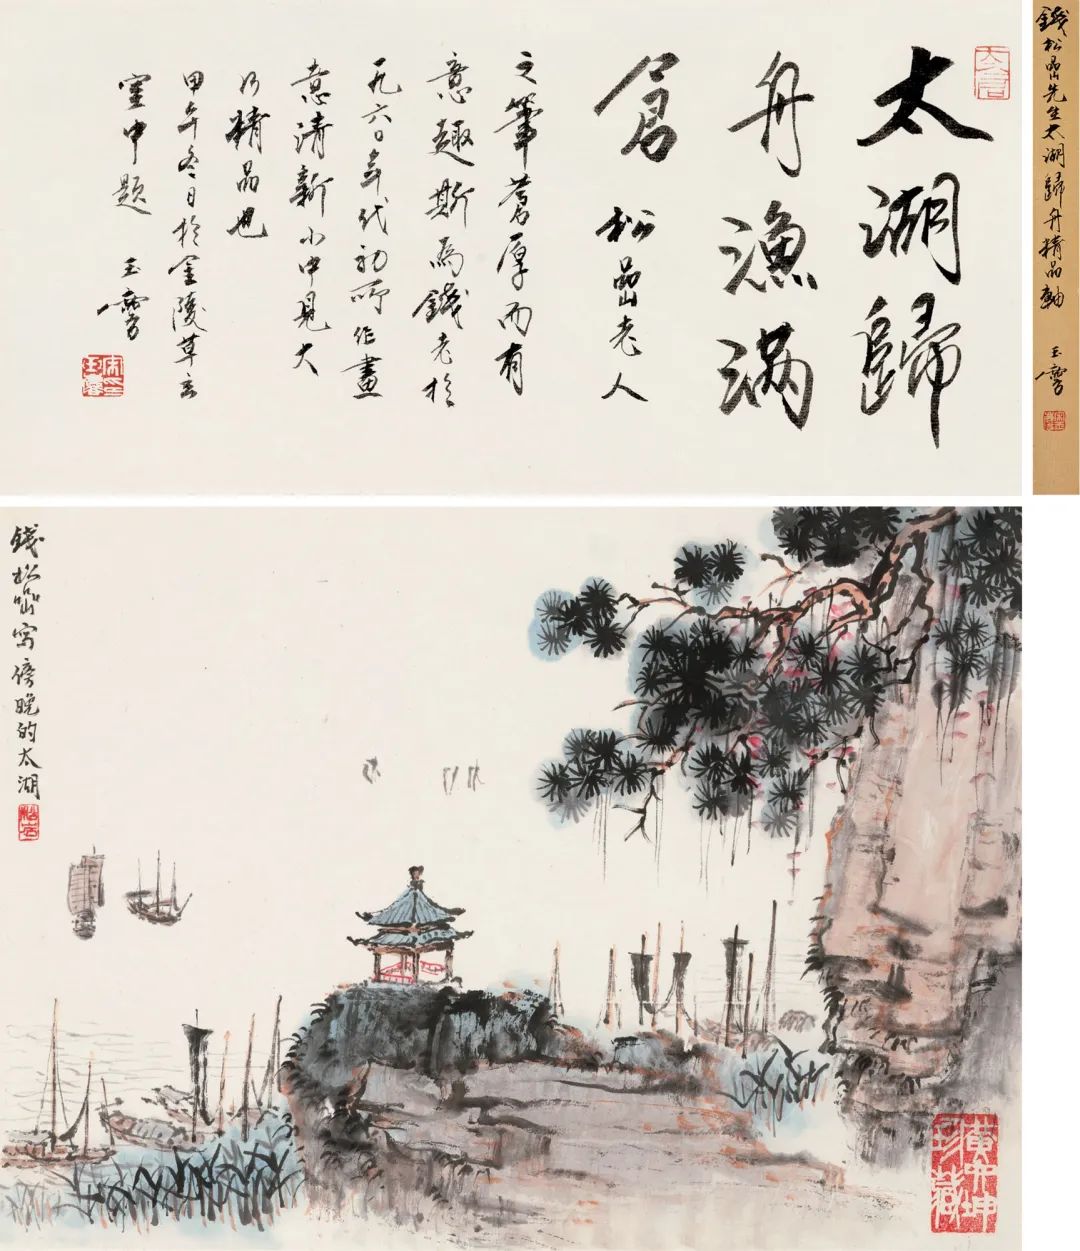 錢松嵒先生太湖歸舟精品軸 玉麐
太湖歸
舟漁滿
倉 松嵒老人
之筆蒼厚而有
意趣斯為錢老於
一九六〇年代初所作畫
意清新小中見大
乃精品也
甲午冬日於金陵草玄
室中題 玉麐
錢松嵒寫傍晚的太湖
松嵒
珍藏